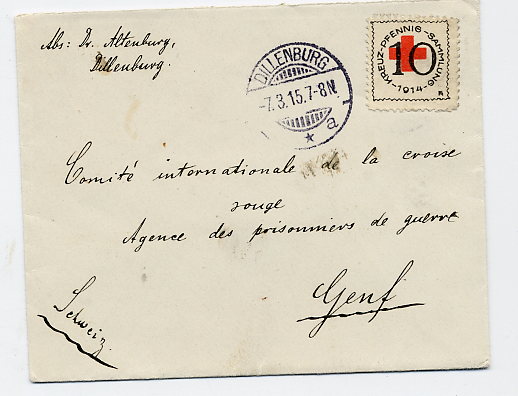 Abs: Dr. Altenburg,
Dillenburg.
DILLENBURG
-7.3.15.7-8N.
* a
KREUZ-PFENNIG-SAMMLUNG
10
-1914-
Comité internationale de la croise
rouge
Agence des prisonniers de guerre
Genf
Schweiz.